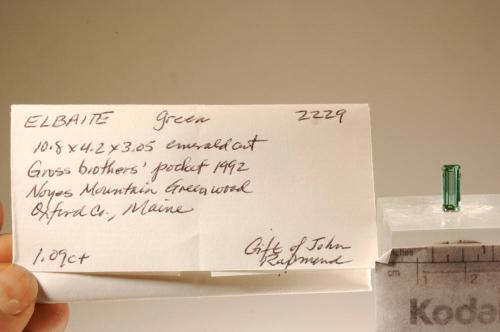 ELBAITE green 2229
10.8 x 4.2 x 3.05 emerald cut
Gross brothers' pocket 1992
Noyes Mountain Greenwood
Oxford Co., Maine
1.09ct
Gift of John
inches
cm
1 2
Koda